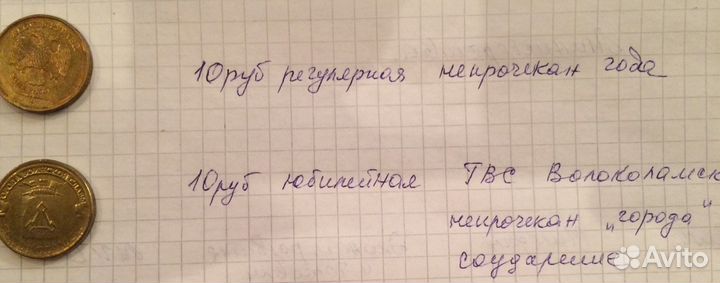 10 руб регулярная непрочекан года
10 руб юбилейная ГВС Волоколамск
непрочекан „города"
соударение
Avito